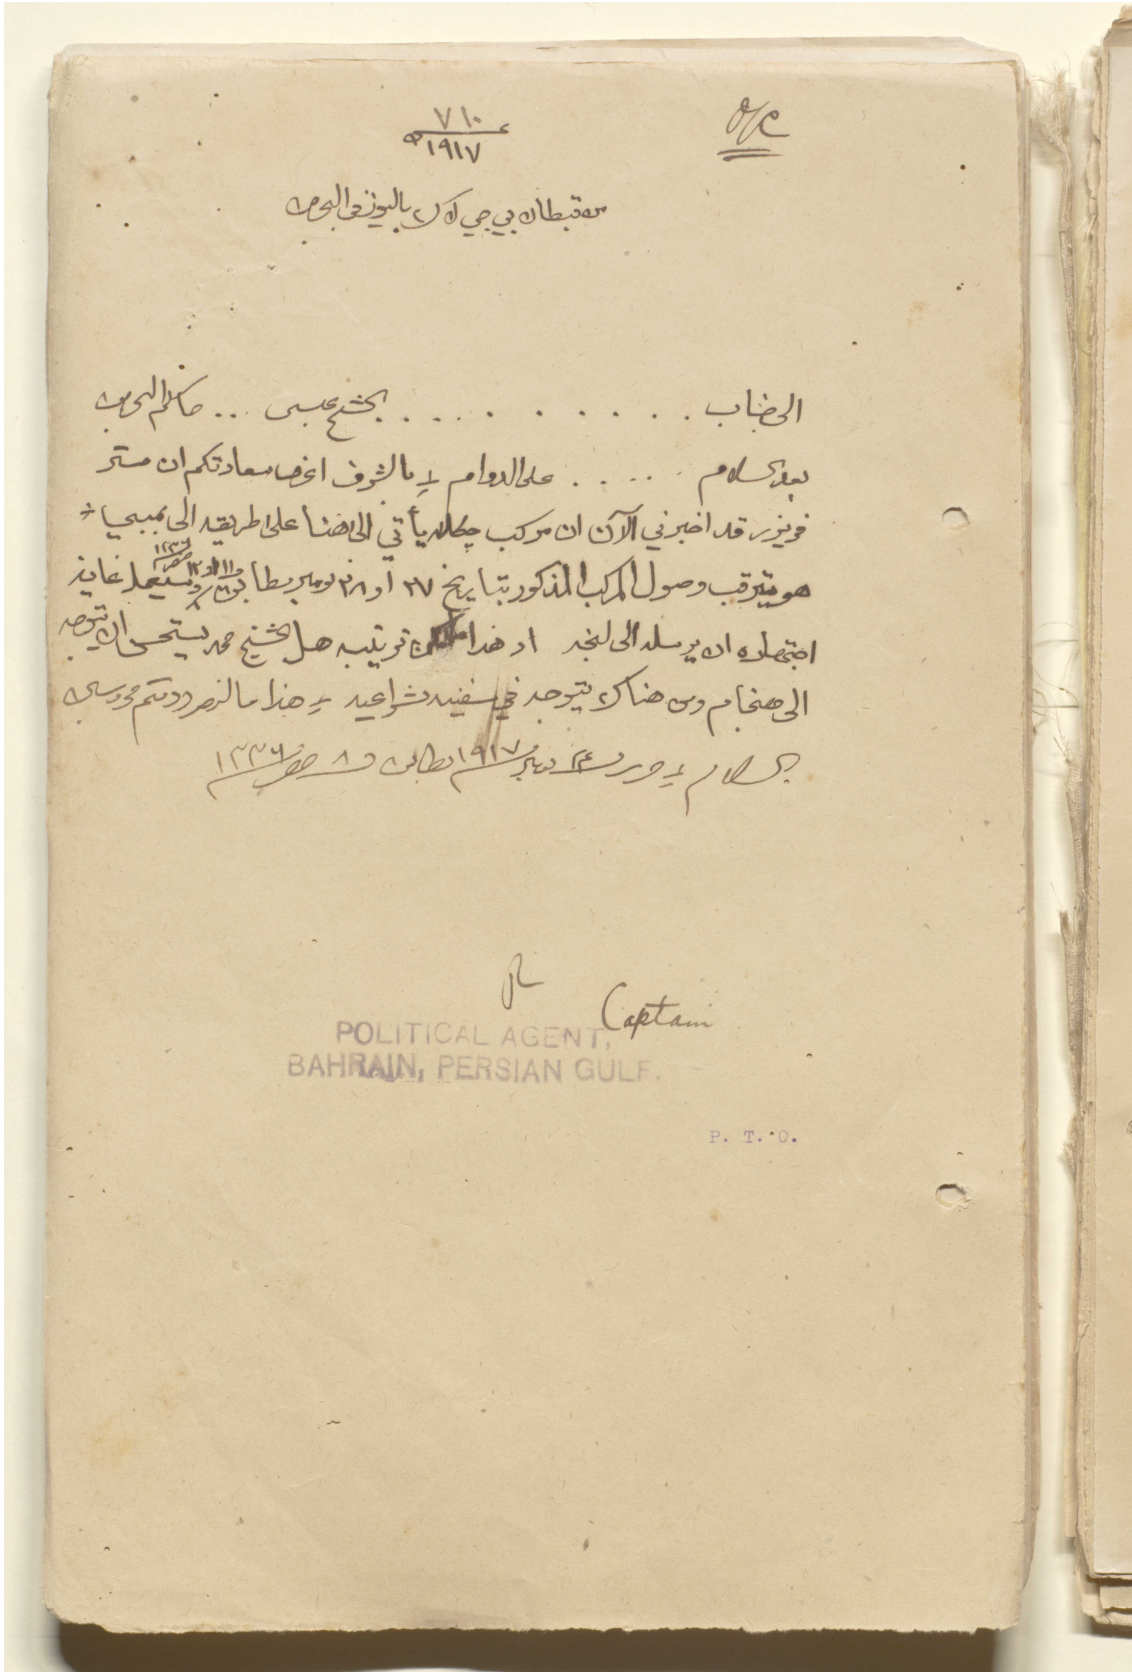 O/C
٧١٠
١٩١٧
من قبطان بي جي لاك باليوز في البحرين
الى جناب . . . . . . . . . . الشيخ عيسى . . . حاكم البحرين
بعد السلام . . . . . على الدوام بالشرف اعرض سعادتكم ان مستر
قد اخبرني الآن ان مركب يأتي الى هنا على طريقه الى بمبي
هو يترقب وصول المركب المذكور بتاريخ ٢٧ او ٢٨ نومبر مطابق ١١ او ١٢ صفر ١٣٣٦ وسيعمل غاية
اجتهاده ان يرسله الى لنجه هذا ترتيبه هل الشيخ محمد يستحسن ان يتوجه
الى هنجام ومن هناك يتوجه في سفينه شراعيه هذا ما لزم ودمتم محروسين
السلام حرر ٢٤ نومبر ١٩١٧ مطابق ٨ صفر ١٣٣٦
Captain
POLITICAL AGENT,
BAHRAIN, PERSIAN GULF.
P. T. O.